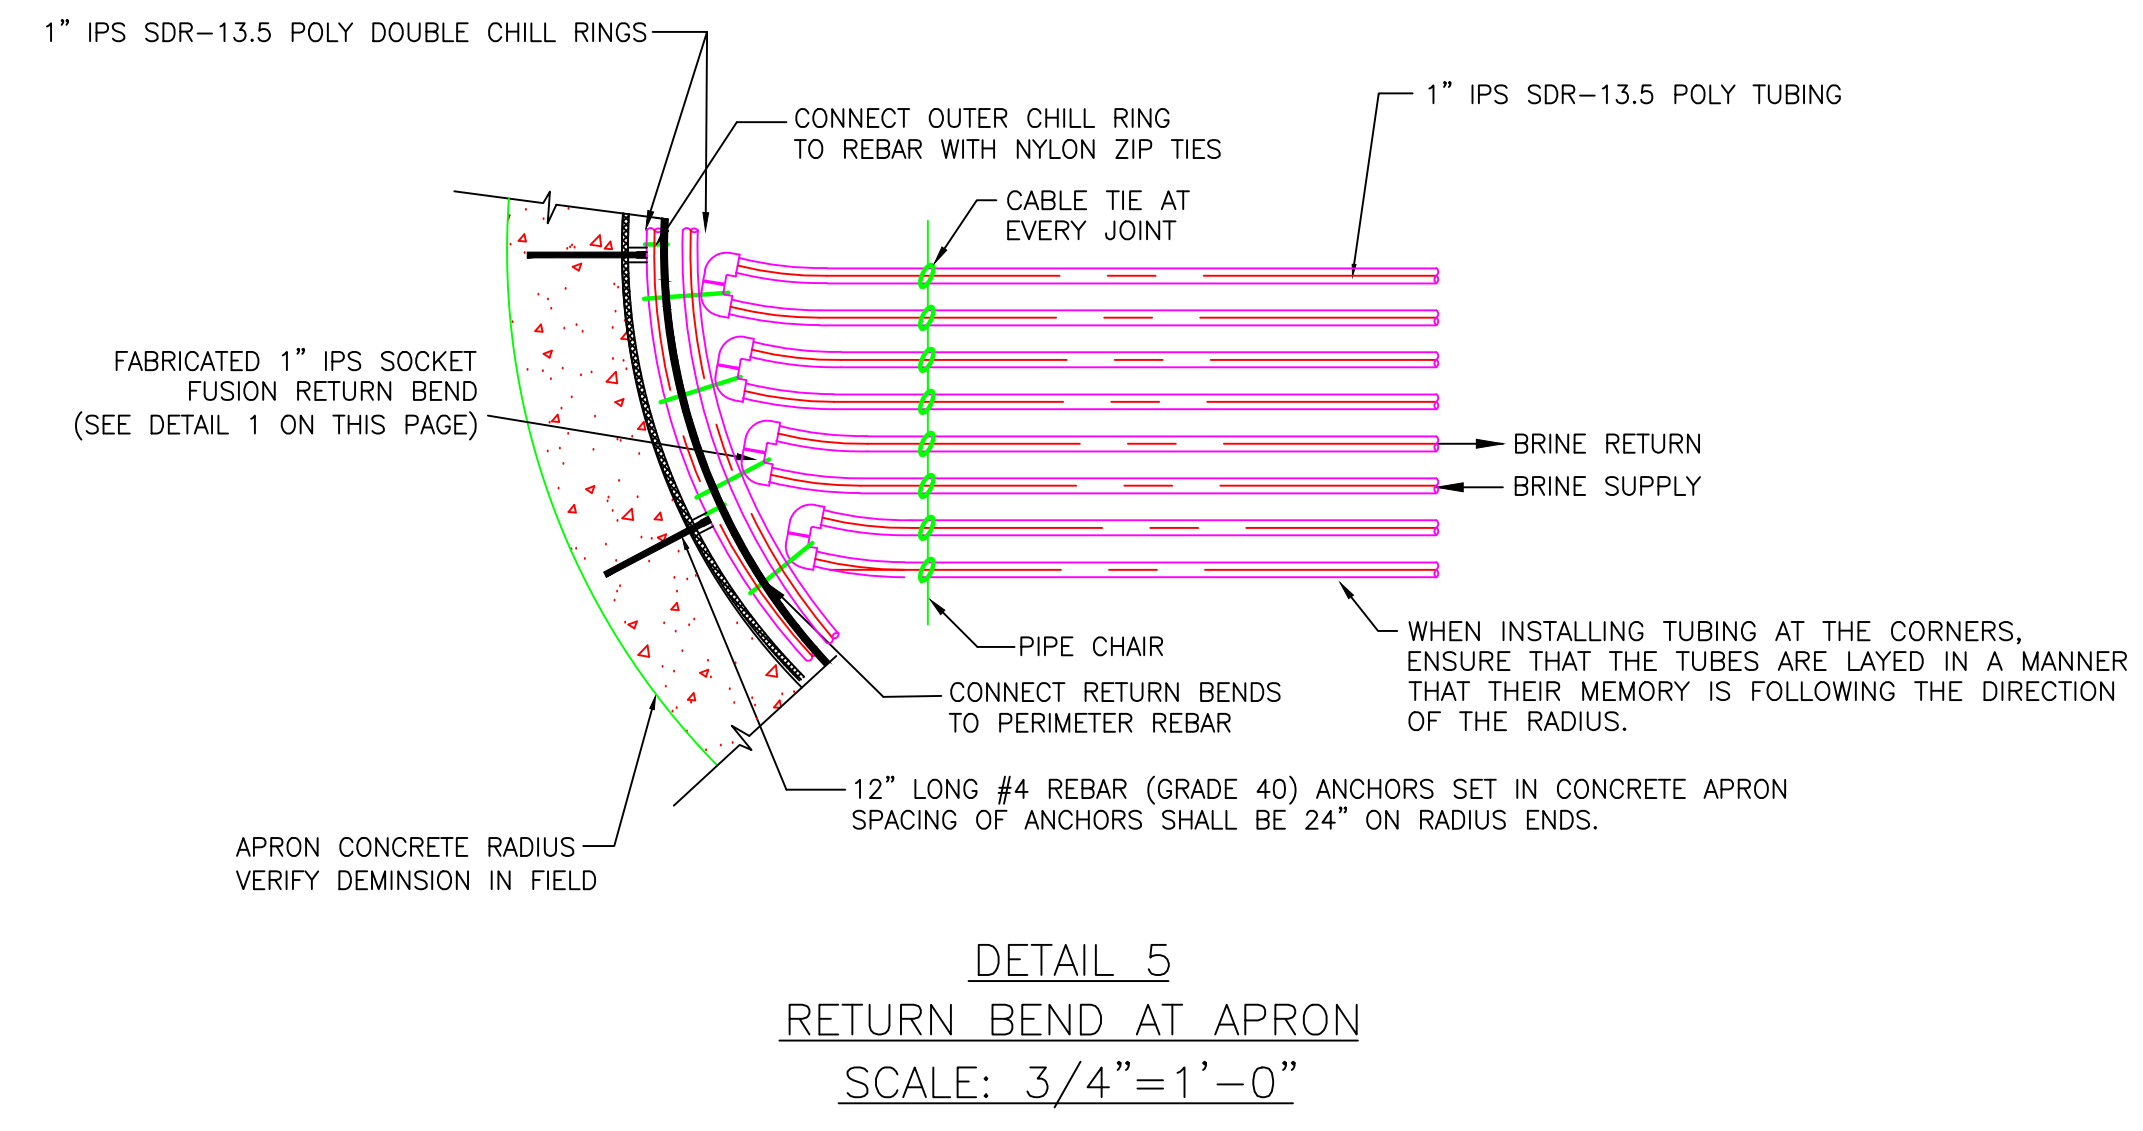 1” IPS SDR-13.5 POLY DOUBLE CHILL RINGS
1” IPS SDR-13.5 POLY TUBING
CONNECT OUTER CHILL RING
TO REBAR WITH NYLON ZIP TIES
CABLE TIE AT
EVERY JOINT
FABRICATED 1” IPS SOCKET
FUSION RETURN BEND
(SEE DETAIL 1 ON THIS PAGE)
BRINE RETURN
BRINE SUPPLY
PIPE CHAIR
WHEN INSTALLING TUBING AT THE CORNERS,
ENSURE THAT THE TUBES ARE LAYED IN A MANNER
THAT THEIR MEMORY IS FOLLOWING THE DIRECTION
OF THE RADIUS.
CONNECT RETURN BENDS
TO PERIMETER REBAR
12” LONG #4 REBAR (GRADE 40) ANCHORS SET IN CONCRETE APRON
SPACING OF ANCHORS SHALL BE 24” ON RADIUS ENDS.
APRON CONCRETE RADIUS
VERIFY DEMINSION IN FIELD
DETAIL 5
RETURN BEND AT APRON
SCALE: 3/4”=1’-0”